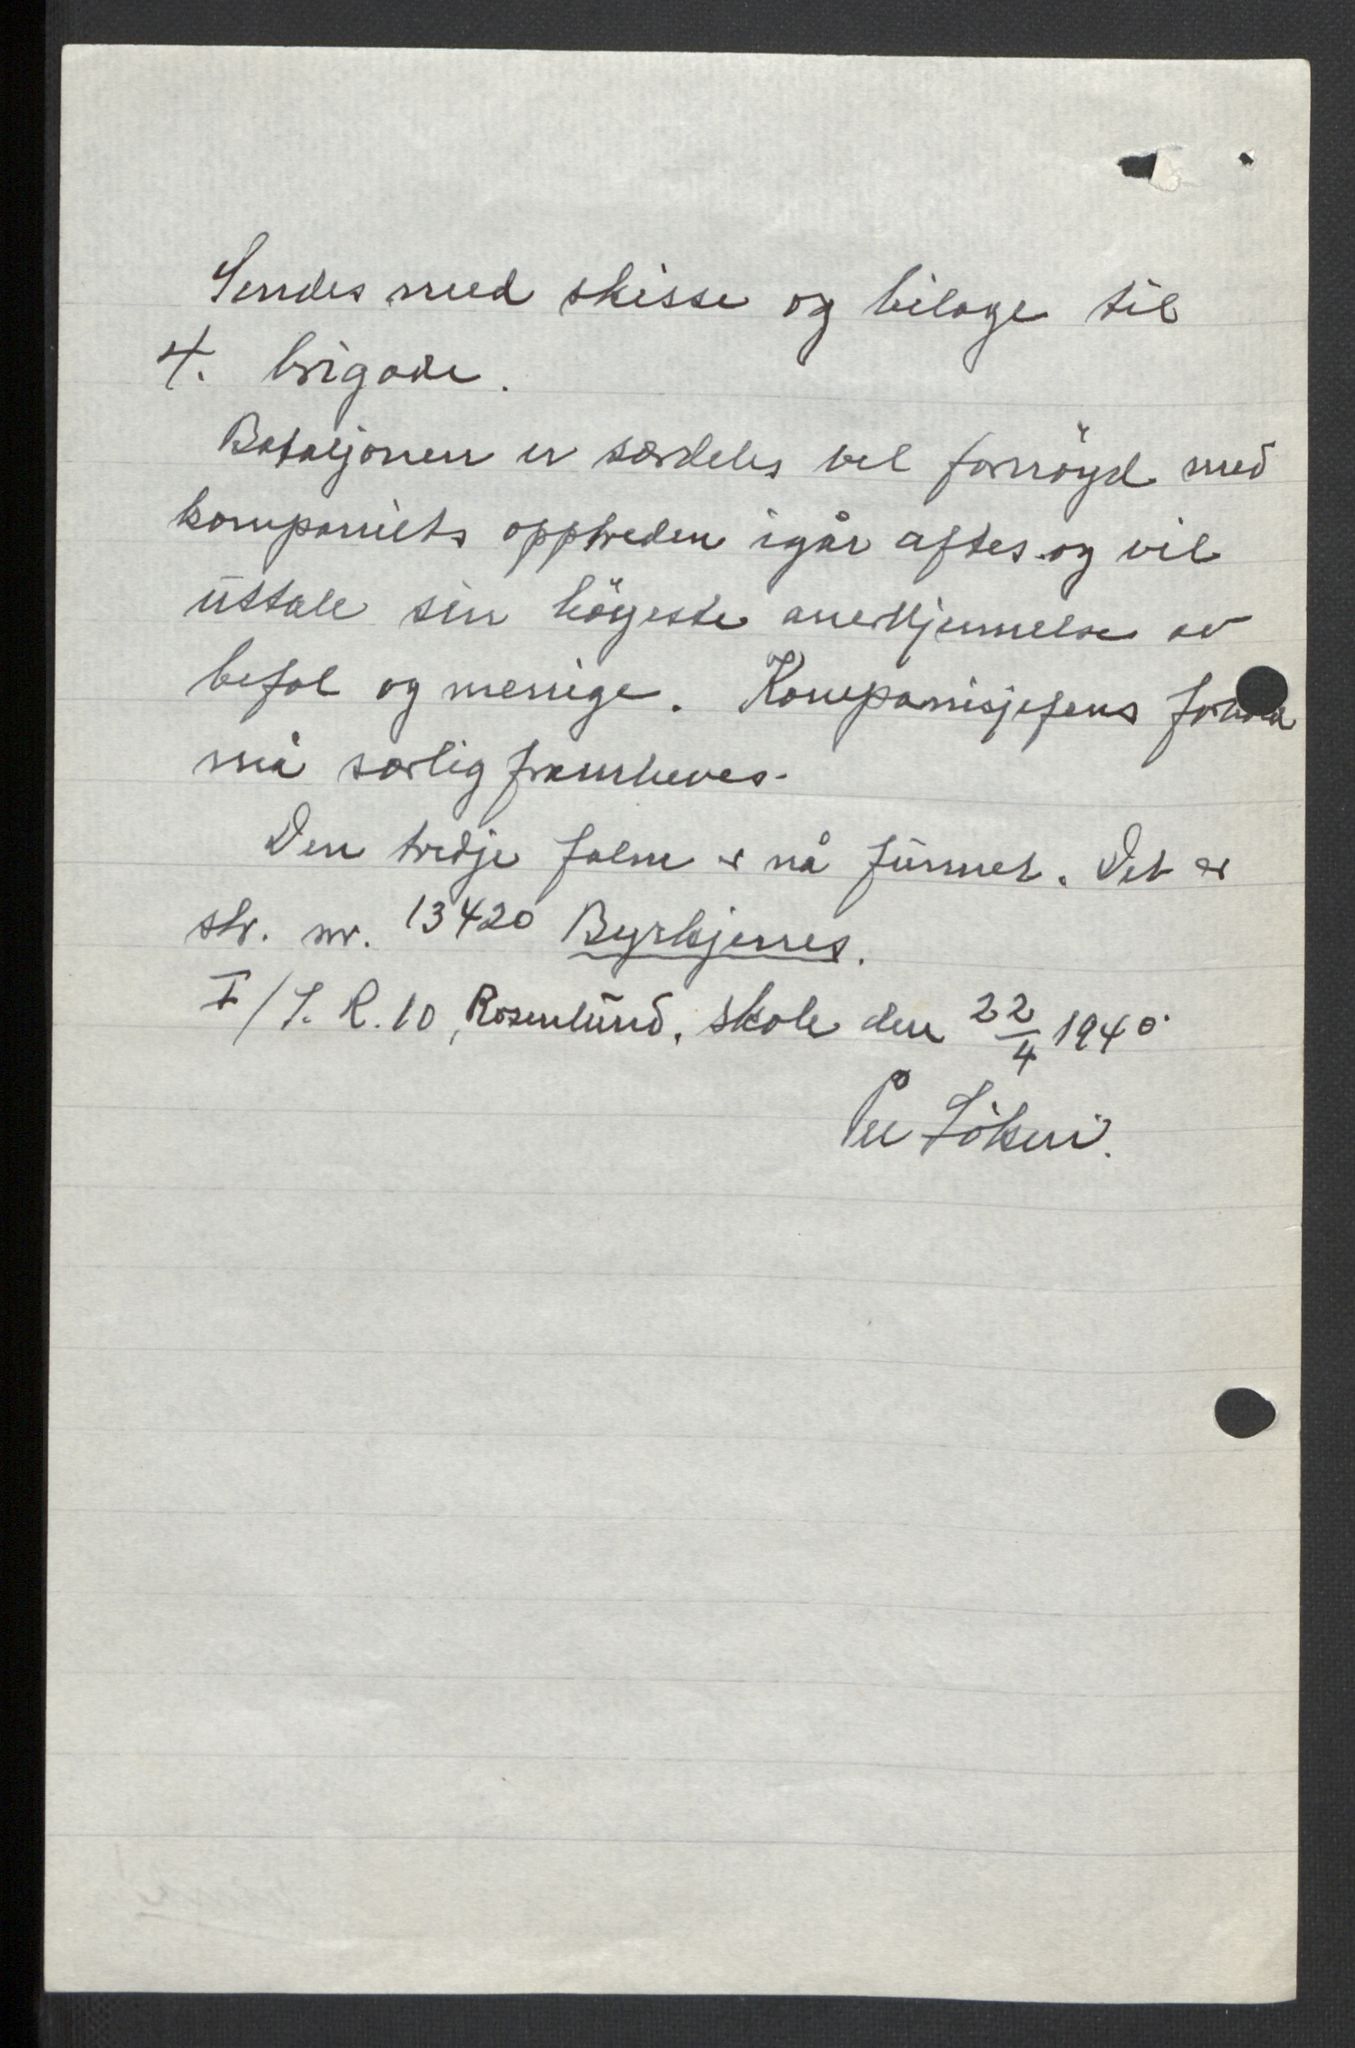 Sendes med skisse og bilage til
4. brigade.
Bataljonen er særdeles vel fornöyd med
kompaniets opptreden igår aftes og vil
uttale sin högeste anerkjennelse av
befal og menige. Kompanisjefens forhold
må særlig fremheves.
Den tredje falne er nå funnet. Det er
str. nr. 13420 Byrkjenes.
I/I.R.10, Rosenlund, skole den 22/4 1940